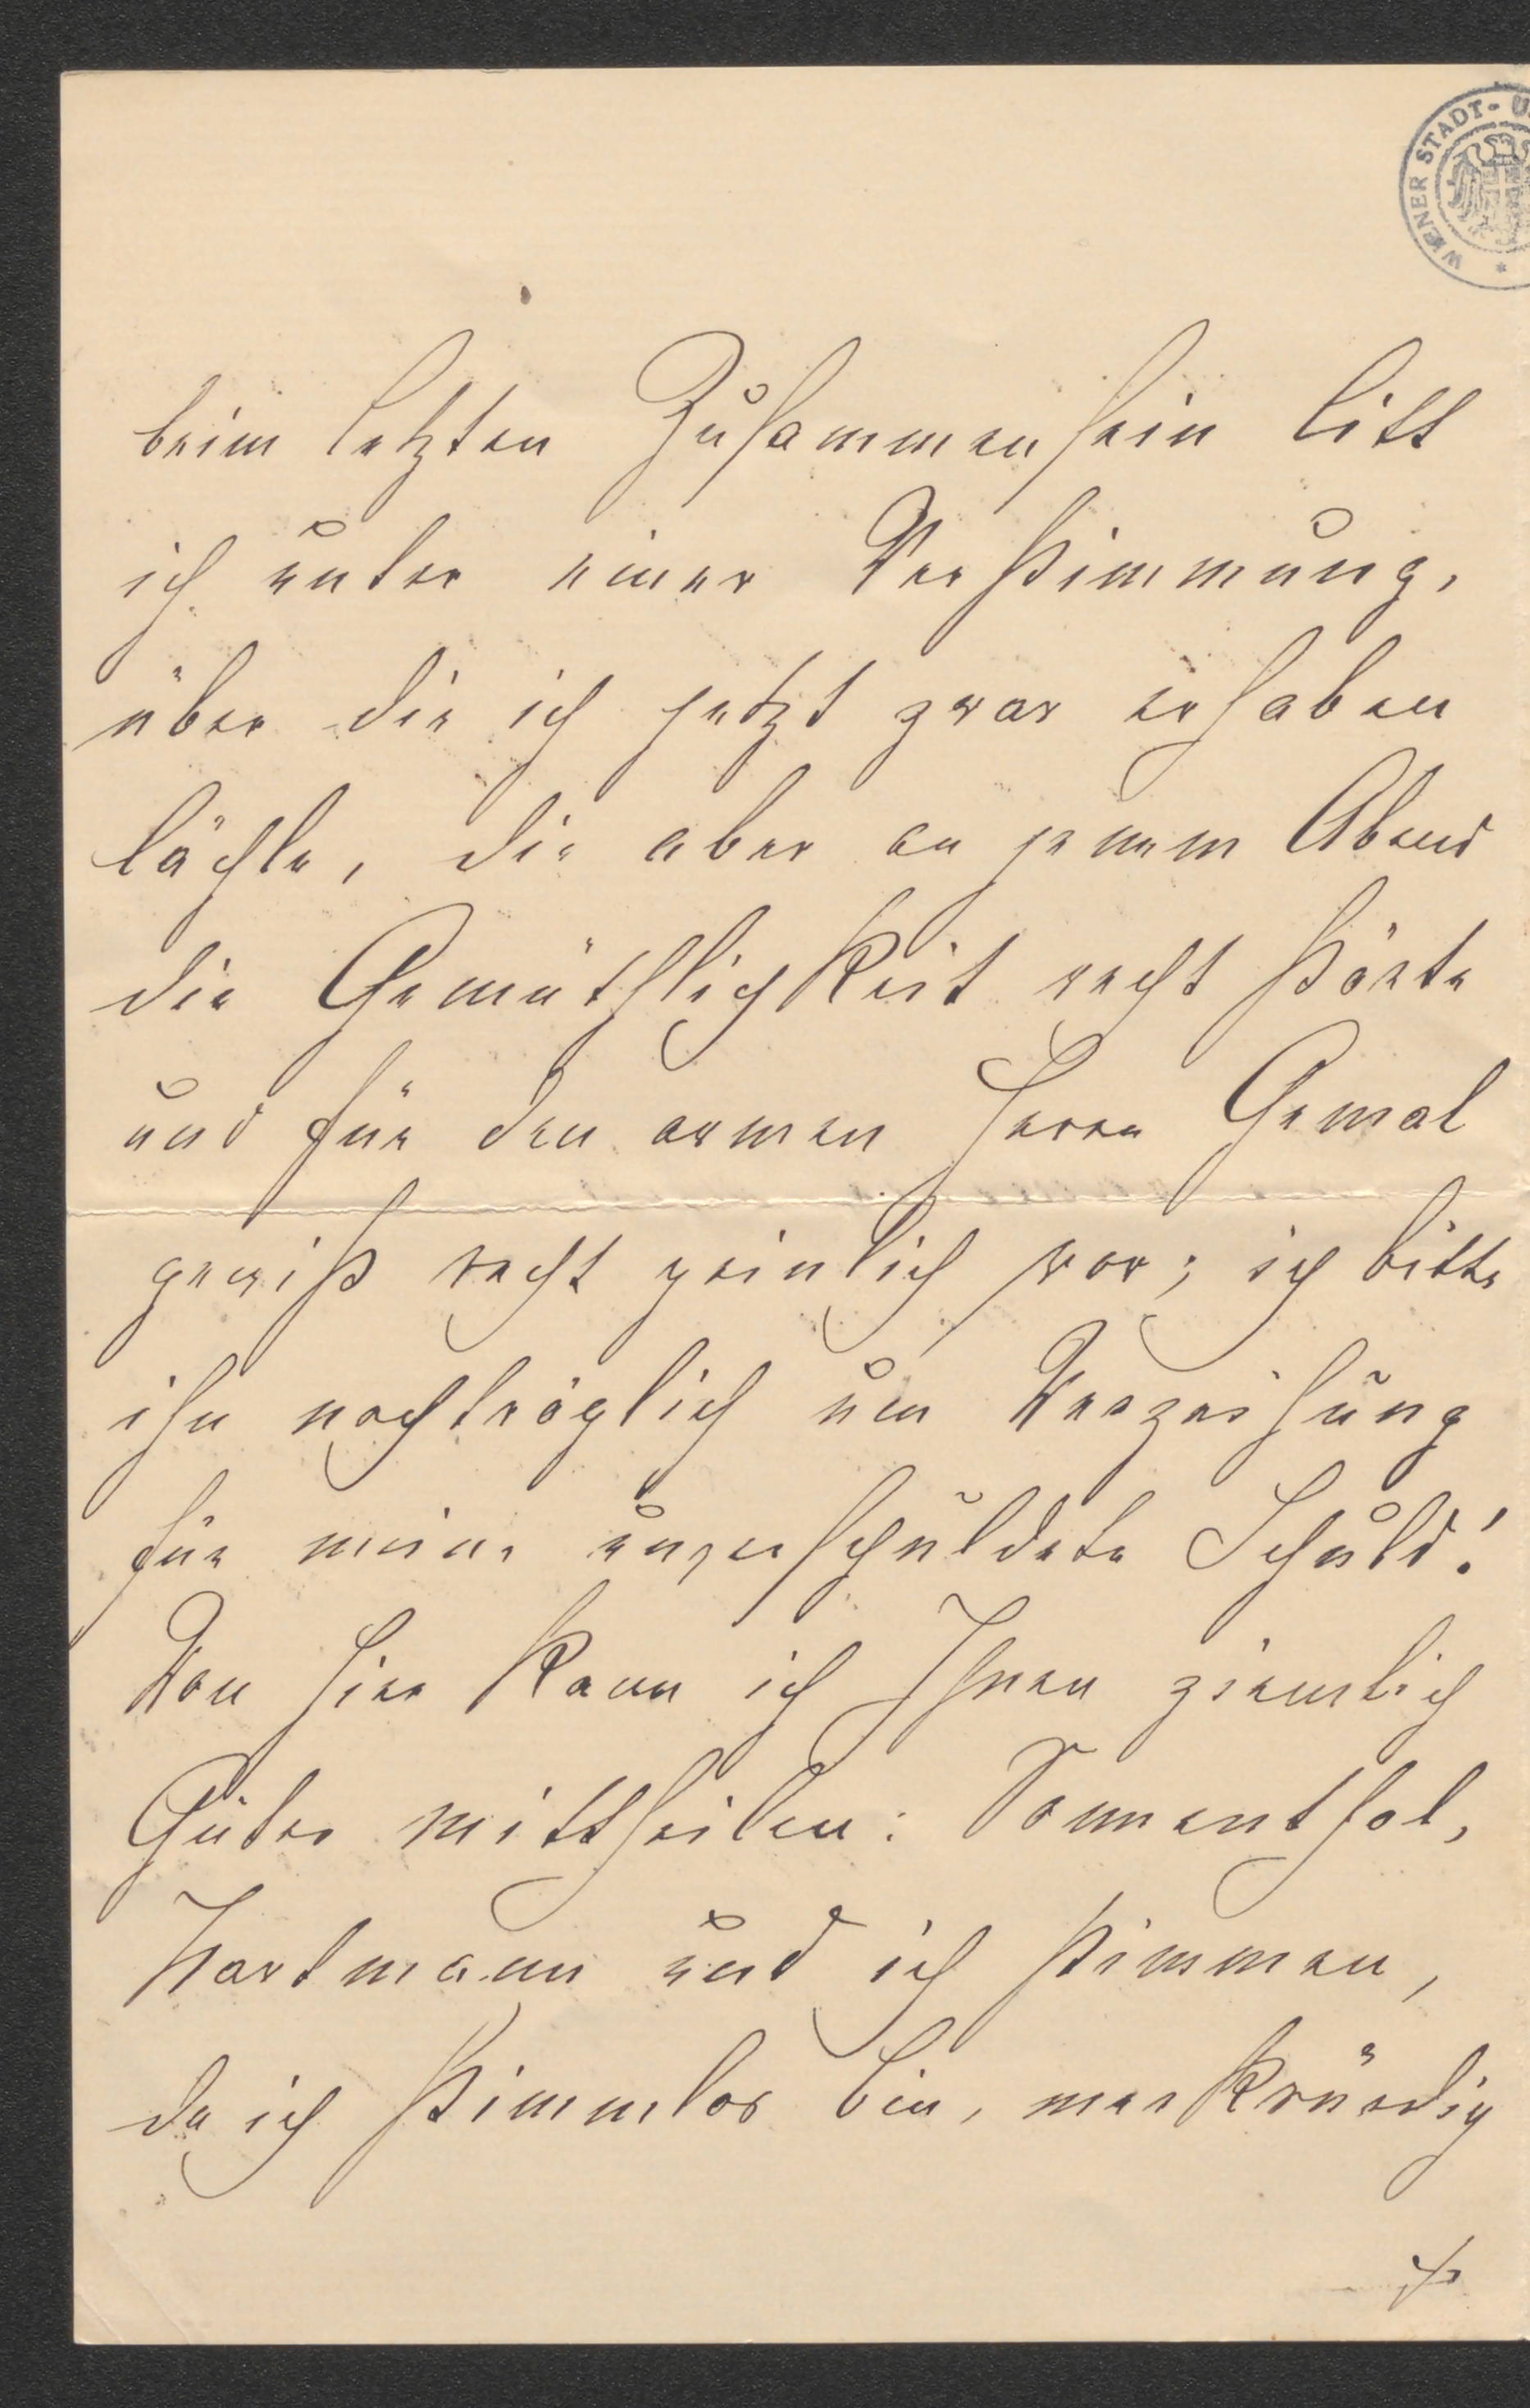 WIENER STADT- U
beim letzten Zusammensein litt
ich unter einer Verstimmung,
über die ich jetzt zwar erhaben
lächle, die aber an jenem Abend
die Gemüthlichkeit recht störte
und für den armen Herrn Gemal
gewiß recht peinlich war; ich bitte
ihn nachträglich um Verzeihung
für meine unverschuldete Schuld!
Von hier kann ich Ihnen ziemlich
Gutes mittheilen: Sonnenthal,
Hartmann und ich stimmen,
da ich stimmlos bin, merkwürdig